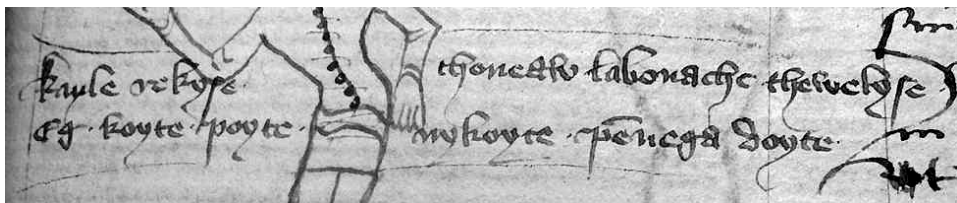 Kayle rekyse · thoneaw labonache thewelyse ·
Eg · koyte · poyte · nykoyte · pēnega doyte ·